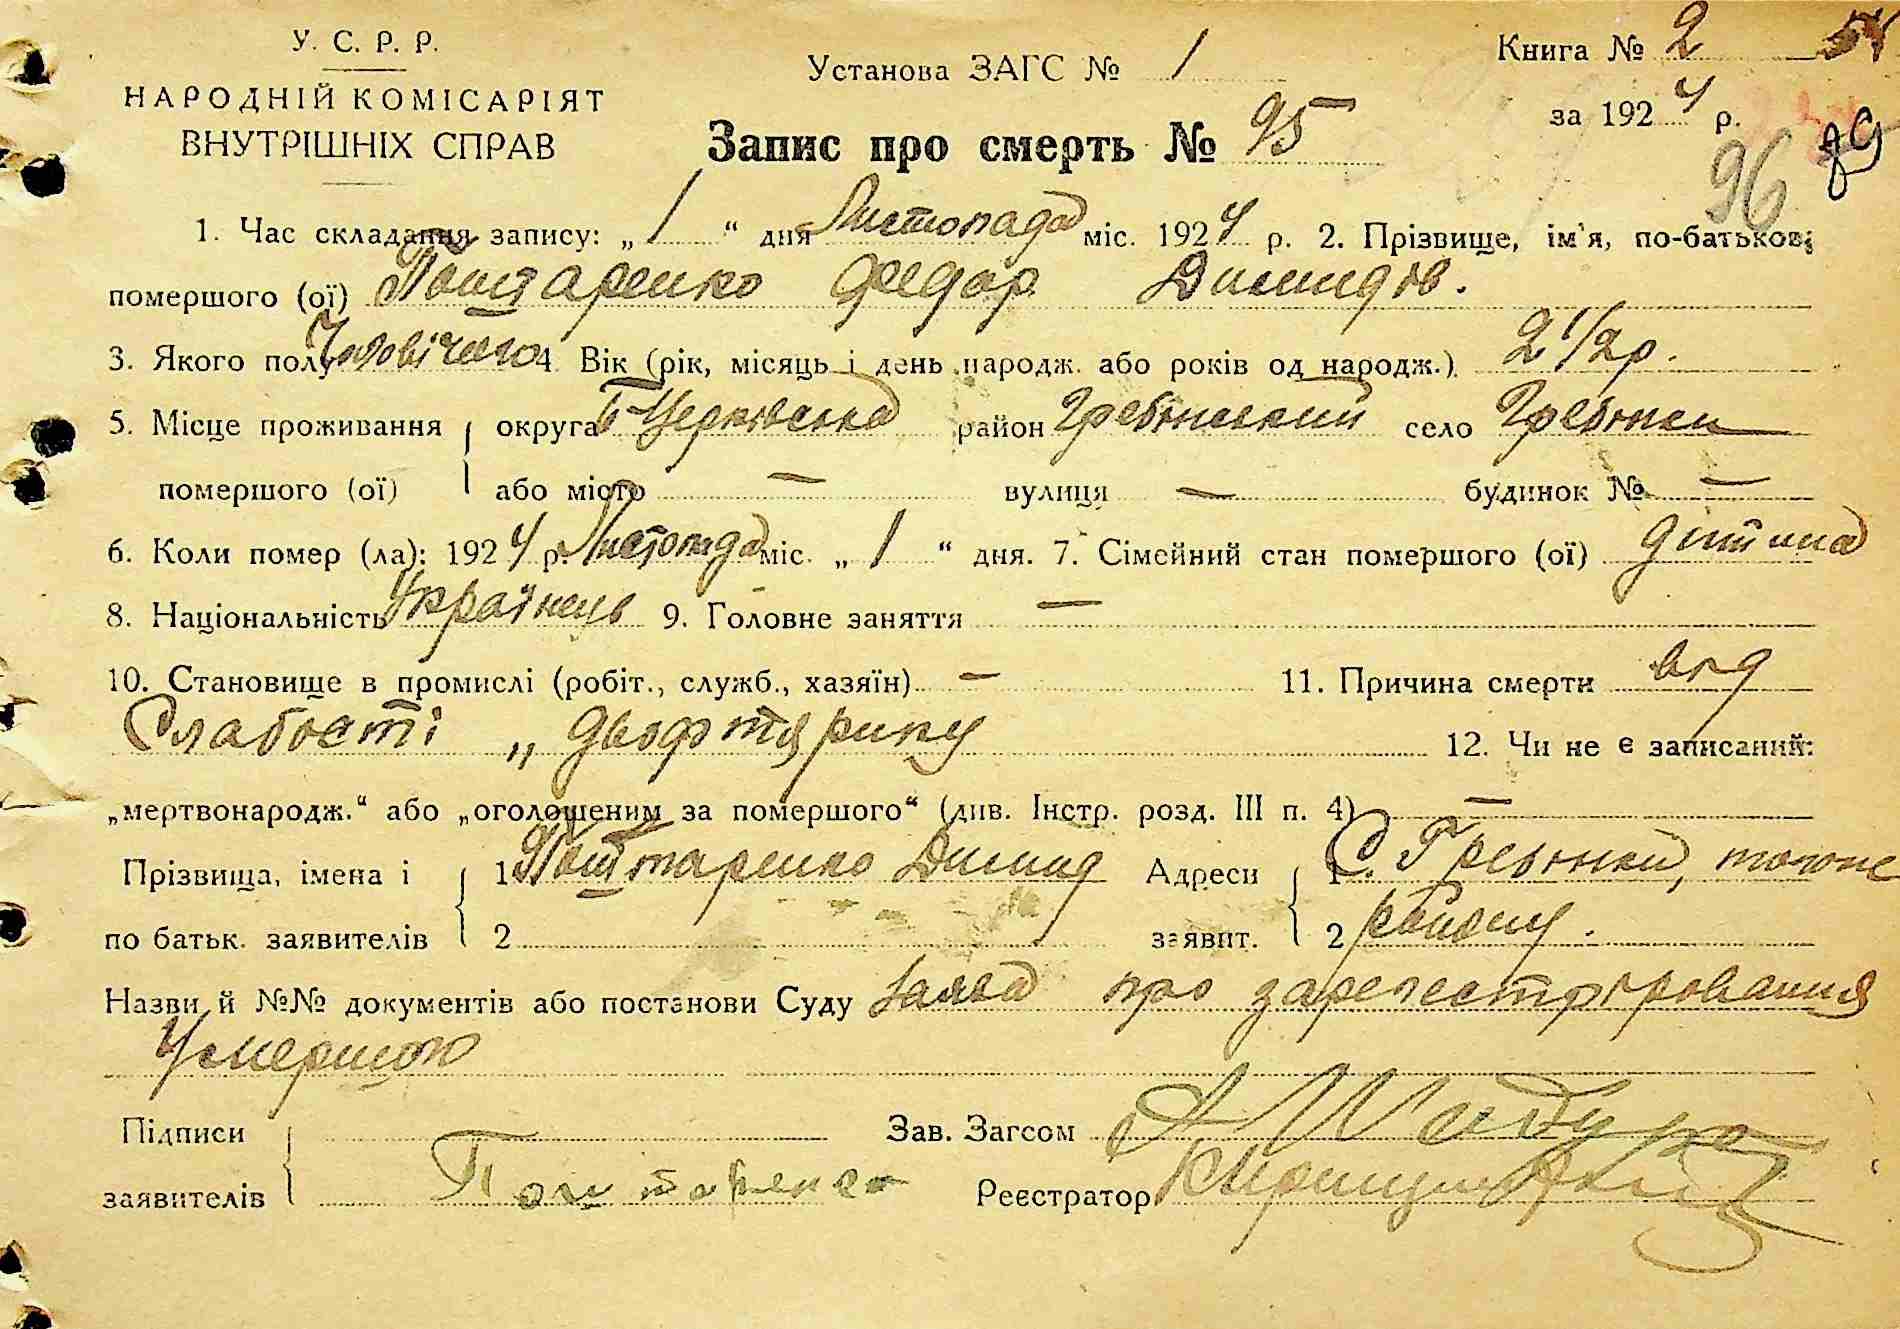 У. С. Р. Р.
НАРОДНІЙ КОМІСАРІЯТ
ВНУТРІШНІХ СПРАВ
Установа ЗАГС № 1
Книга № 2
за 1924 р.
Запис про смерть № 95
96
1. Час складання запису: „1“ дня Листопада міс. 1924 р. 2. Прізвище, ім'я, по-батькові
помершого (ої) Поштаренко Федор Димидів.
3. Якого полу Чоловічого 4. Вік (рік, місяць і день народж. або років од народж.) 2 1/2 р.
5. Місце проживання округа Б Церківська район Гребінський село Гребінки
помершого (ої) або місто — вулиця — будинок № —
6. Коли помер (ла): 1924 р. Листопада міс. „1“ дня. 7. Сімейний стан помершого (ої) дитина
8. Національність Українець 9. Головне заняття —
10. Становище в промислі (робіт., служб., хазяїн) — 11. Причина смерти від
Слабості „
12. Чи не є записаний:
„мертвонародж.“ або „оголошеним за помершого“ (див. Інстр. розд. III п. 4) —
Прізвища, імена і 1 Поштаренко Димид Адреси 1 С. Гребінки, того ж
по батьк. заявителів 2 заявит. 2 району.
Назви й №№ документів або постанови Суду Заява про
Умершого
Підписи Зав. Загсом
заявителів Поштаренко Реєстратор